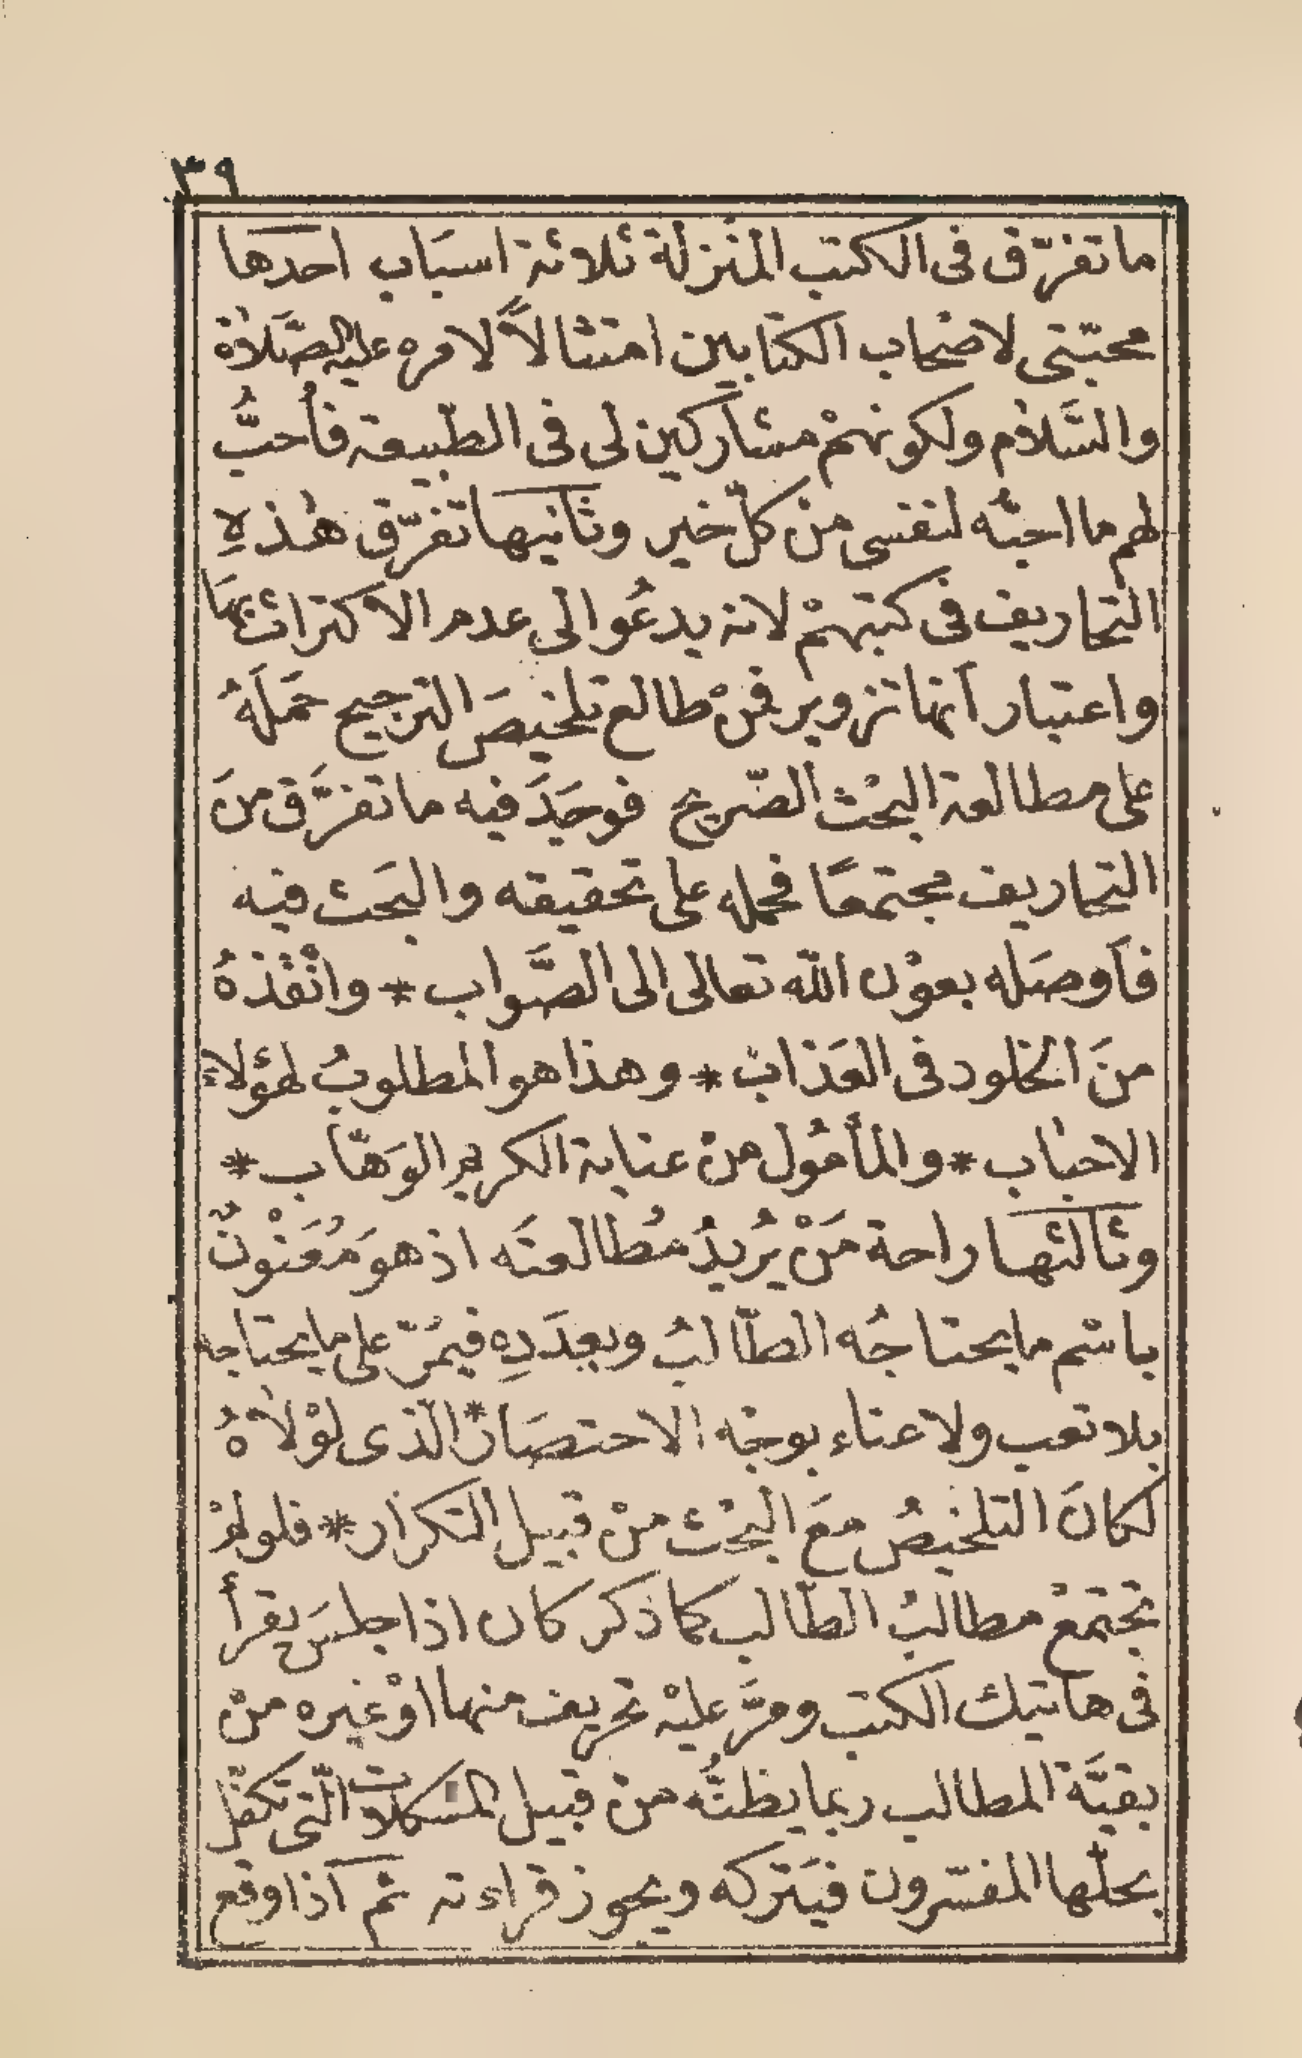 ٣٩
ما تفرّق فى الكتب المنزلة ثلاثة اسبَاب احدها
محبّتى لاصْحاب الكتابين امتثالاً لامره عليه الصَّلاة
والسَّلام ولكونهمْ مشاركين لى فى الطّبيعة فأُحبُّ
لهم ما احبّه لنفسى منْ كلّ خير وثانيها تفرّق هٰذهِ
التحاريف فى كتبهمْ لانه يدعُو الى عدم الاكتراث بهَا
واعتبار أنها تزوير فمنْ طالع تلخيصَ الترجيح حَمَلَهُ
على مطالعة البحْث الصّريح فوجَدَ فيه ما تفرَّق منَ
التحاريف مجتمعًا فحمله على تحقيقه والبَحث فيه
فأوصَله بعوْن الله تعالى الى الصَّواب * وانْقذهُ
منَ الخلود فى العَذاب * وهذا هو المطلوبُ لهؤلاءِ
الاحباب * والمأمُول منْ عناية الكريم الوَهّاب *
وثالثها راحة مَنْ يُريدُ مُطالعتَه اذ هوَ مُعَنْونٌ
باسْم ما يحتاجُه الطّالبُ وبعدَدِه فيمُرّ على ما يحتاجه
بلا تعب ولا عناء بوجْه الاختصَار * الّذى لوْلاهُ
لكانَ التلخيصُ معَ البحْث منْ قبيل التكرار * فلو لمْ
تجتمعْ مطالبُ الطّالب كما ذكر كان اذا جلسَ يقرأ
فى هاتيك الكتب ومرَّ عليْه تحريف منها اوْ غيره منْ
بقيَّة المطالب ربما يظنُّه منْ قبيل المشكلات الّتى تكفّل
بحلّها المفسّرون فيَتركه ويجوز قراءته ثم اذا وقع